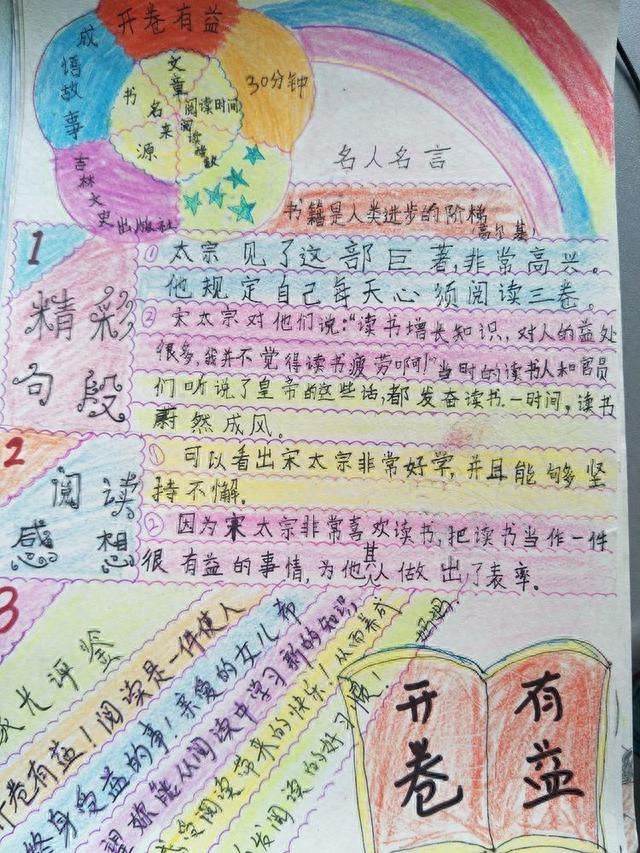 开卷有益
成语故事
30分钟
文章
书名
阅读时间
来源
阅读
吉林文史出版社
名人名言
书籍是人类进步的阶梯
(高尔基)
1
精彩
句段
①太宗见了这部巨著,非常高兴。
他规定自己每天必须阅读三卷。
②宋太宗对他们说:“读书增长知识,对人的益处
很多,我并不觉得读书疲劳啊!”当时的读书人和官员
们听说了皇帝的这些话,都发奋读书.一时间,读书
蔚然成风。
2
阅读
感想
①可以看出宋太宗非常好学,并且能够坚
持不懈。
②因为宋太宗非常喜欢读书,把读书当作一件
很有益的事情,为他其人做出了表率。
3
评鉴
卷有益!阅读是一件使人
终身受益的事!亲爱的女儿希
望你能从阅读中学习新的知识,
受阅读带来的快乐!从而养成
发阅读的好习惯!
妈妈.
开卷
有益